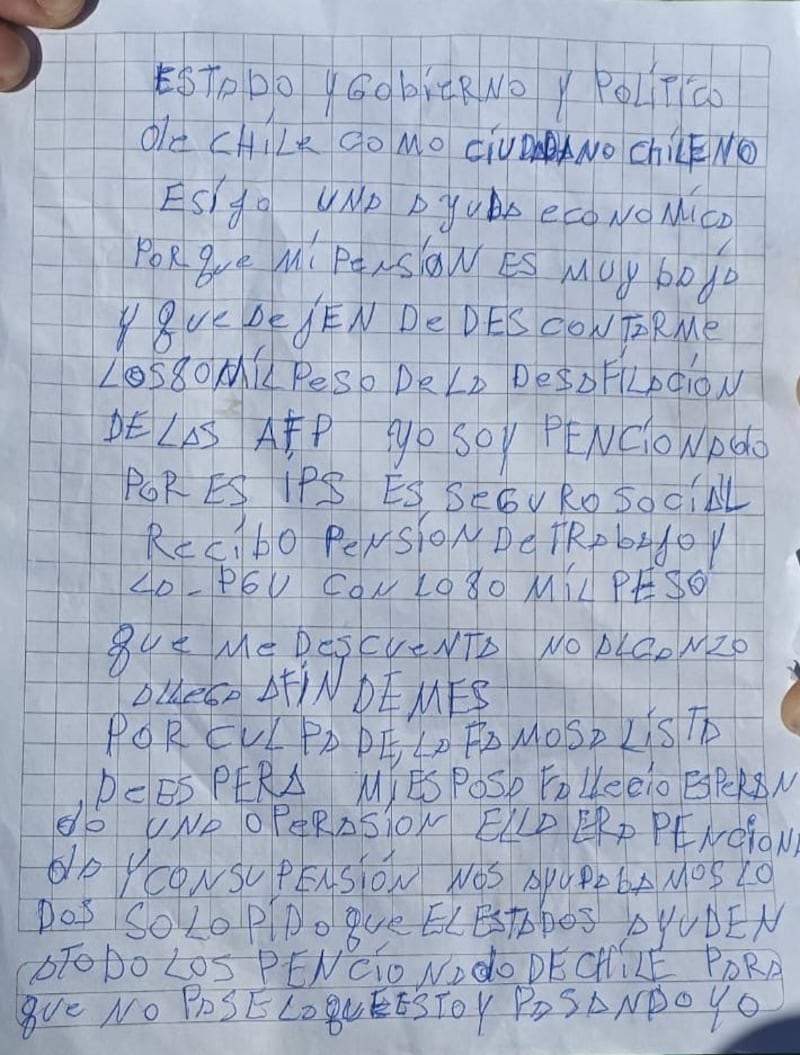 ESTADO Y GobiERNO Y POLíTico
de CHíLe COMO CíUDADANO CHíLENO
ESíjo UNA AYUDA ECONOMíCA
PORque Mi PeNSíON ES MUY bAjA
Y que DejEN De DESCONTARMe
LOS 80 MíL PeSO De LA DeSAFíLACíON
DE LAS AFP YO SOY PENCíONAdo
POR ES IPS ES SeGURO SOCíAL
RecíbO PeNSíON De TRAbAjO Y
LA - PGU CON LO 80 MíL PESO
que Me DeSCUeNTA NO ALCANZO
A LLEGA A FíN DE MES
POR CULPA DE LA FAMOSA LíSTA
De ESPERA Mi ESPOSA FALLecio ESPeRAN
do UNA OPeRASíON ELLA ERA PENcíONA
dA Y CON SU PENSíÓN NOS AYUDAbAMOS LO
DOS SOLO PíDO que EL ESTADOS AYUDEN
A TODO LOS PENCíONAdo DE CHíLE PARA
que NO PASE LO que ESTOY PASANDO YO